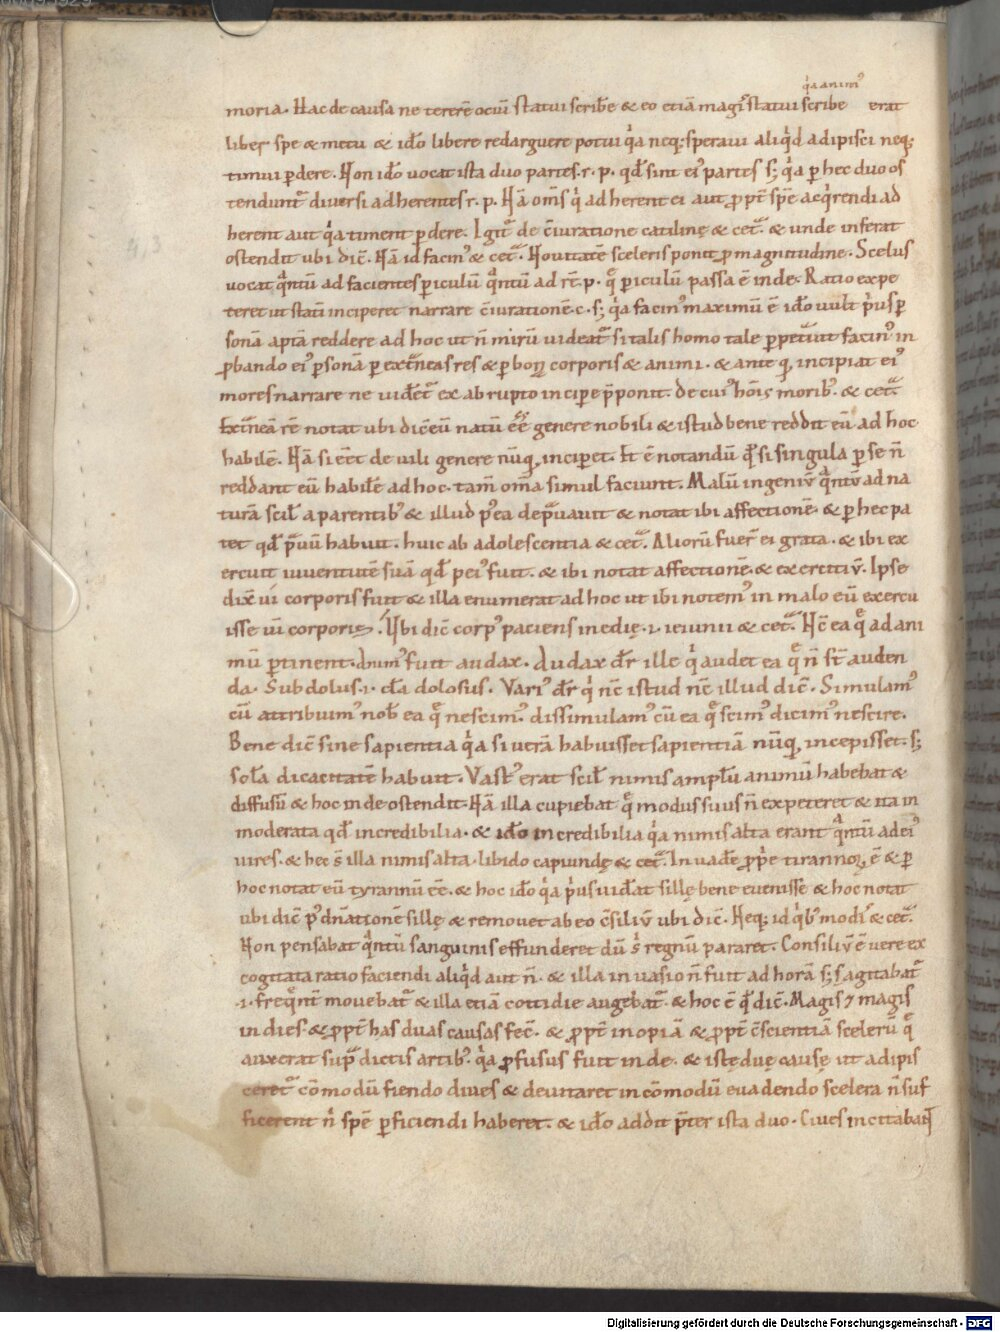 q̇a anim᷒
moria. Hac de causa ne tererē ociū statui scribe͛ & eo etiā magis̛ statui scribe͛ erat
liber spe & metu & id̄o libere redarguere potui q̇a neq; speraui aliq̇d adipisci neq;
timui p̱dere. Non id̄o uocat ista duo partes .r. p. qd̄ sint ei᷒ partes s; q̇a p̱ hec duo os
tendunt᷑ diuersi adherentes .r. p. Nā om̄s q̇ adherent ei aut p̱pt̄ spē acq̇rendi ad
herent aut q̇a timent p̱dere. Igit᷑ de c̄iuratione catilinę & cet᷑. & unde inferat
ostendit ubi dic̄. Nā id facin᷒ & cet᷑. Nouitatē sceleris ponit p̱ magnitudine. Scelus
uocat qͣntū ad facientes p̱iculū qͣntū ad rē.p. q̄ p̱iculū passa ē inde. Ratio expe
teret ut statī inciperet narrare c̄iurationē .c. s; q̇a facin᷒ maximū ē id̄o uult p̓us p̱
sonā aptā reddere ad hoc ut n̄ mirū uideat᷑ si talis homo tale p̱petuit facin᷒ in
p̱bando ei᷒ p̱sonā p̱ ext᷑neas res & p̱ boꝝ corporis & animi. & ante q̄ incipiat ei᷒
mores narrare ne uid̄et᷑ ex abrupto incipe p̄ponit. de cui᷒ hōis morib᷒. & cet᷑.
Ext᷑neā rē notat ubi dic̄ eū natū ēē genere nobili & istud bene reddit eū ad hoc
habilē. Nā si eēt de uili genere nūq̄ inciperet. Et ē notandū qd̄ si singula p̱ se n̄
reddant eū habilē ad hoc. tam̄ om̄a simul faciunt. Malū ingeniū qͣntū ad na
turā scil̄ a parentib᷒ & illud p᷒ea dep̱uauit & notat ibi affectionē. & p̱ hec pa
tet qd̄ p̱uū habuit. huic ab adolescentia & cet᷑. Aliorū fuer̄ ei grata. & ibi ex
ercuit iuuentutē suā qd̄ pei᷒ fuit. & ibi notat affectionē & exercitiū. Ipse
dix̄ ui corporis fuit & illa enumerat ad hoc ut ibi notem᷒ in malo eū exercu
isse uī corporis. Ubi dic̄ corp᷒ paciens inedię .i. ieiunii & cet᷑. Hc̄ ea q̄ ad ani
mū p̱tinent. Anim᷒ fuit audax. Audax dr̄ ille q̇ audet ea q̄ n̄ st̄ auden
da. Subdolus .i. cl̄a dolosus. Vari᷒ dr̄ q̇ nc̄ istud nc̄ illud dic̄. Simulam᷒
cū attribuim᷒ nob̄ ea q̄ nescim᷒. dissimulam᷒ cū ea q̄ scim᷒ dicim᷒ nescire.
Bene dic̄ sine sapientia q̇a si uerā habuisset sapientiā nūq̄ incepisset. s;
sol̄a dicacitatē habuit. Vast᷒ erat scil̄ nimis amplū animū habebat &
diffusū & hoc inde ostendit. Nā illa cupiebat q̄ modus suus n̄ expeteret & ita in
moderata qd̄ incredibilia. & id̄o incredibilia q̇a nimis alta erant qͣntū ad ei᷒
uires. & hec s̄ illa nimis alta. libido capiundę & cet᷑. Inuade͛ p̱p̓e tirannoꝝ ē & p̱
hoc notat eū tyrannū ēē. & hoc id̄o q̇a p̓us uid̄at sillę bene euenisse & hoc notat
ubi dic̄ p᷒ dn̄ationē sillę & remouet ab eo c̄siliū ubi dic̄. Neq; id q̇b᷒ modis & cet᷑.
Non pensabat qͣntū sanguinis effunderet dū s̓ regnū pararet. Consiliū ē uere ex
cogitata ratio faciendi aliq̇d aut n̄. & illa inuasio n̄ fuit ad horā s; agitabat᷑
.i. freq̄nt᷑ mouebat᷑ & illa etiā cottidie augebat᷑. & hoc ē qd̄ dic̄. Magis ⁊ magis
in dies. & p̱pt̄ has duas causas fec̄. & p̱pt̄ inopiā & p̱pt̄ c̄scientiā scelerū q̄
auxerat sup᷑dictis artib᷒. q̇a p̱fusus fuit inde. & istę duę causę ut adipis
ceret᷑ cōmodū fiendo diues & deuitaret incōmodū euadendo scelera n̄ suf
ficerent n̓ spē p̱ficiendi haberet. & id̄o addit p̄ter ista duo. Ciues incitabant
Digitalisierung gefördert durch die Deutsche Forschungsgemeinschaft - DFG